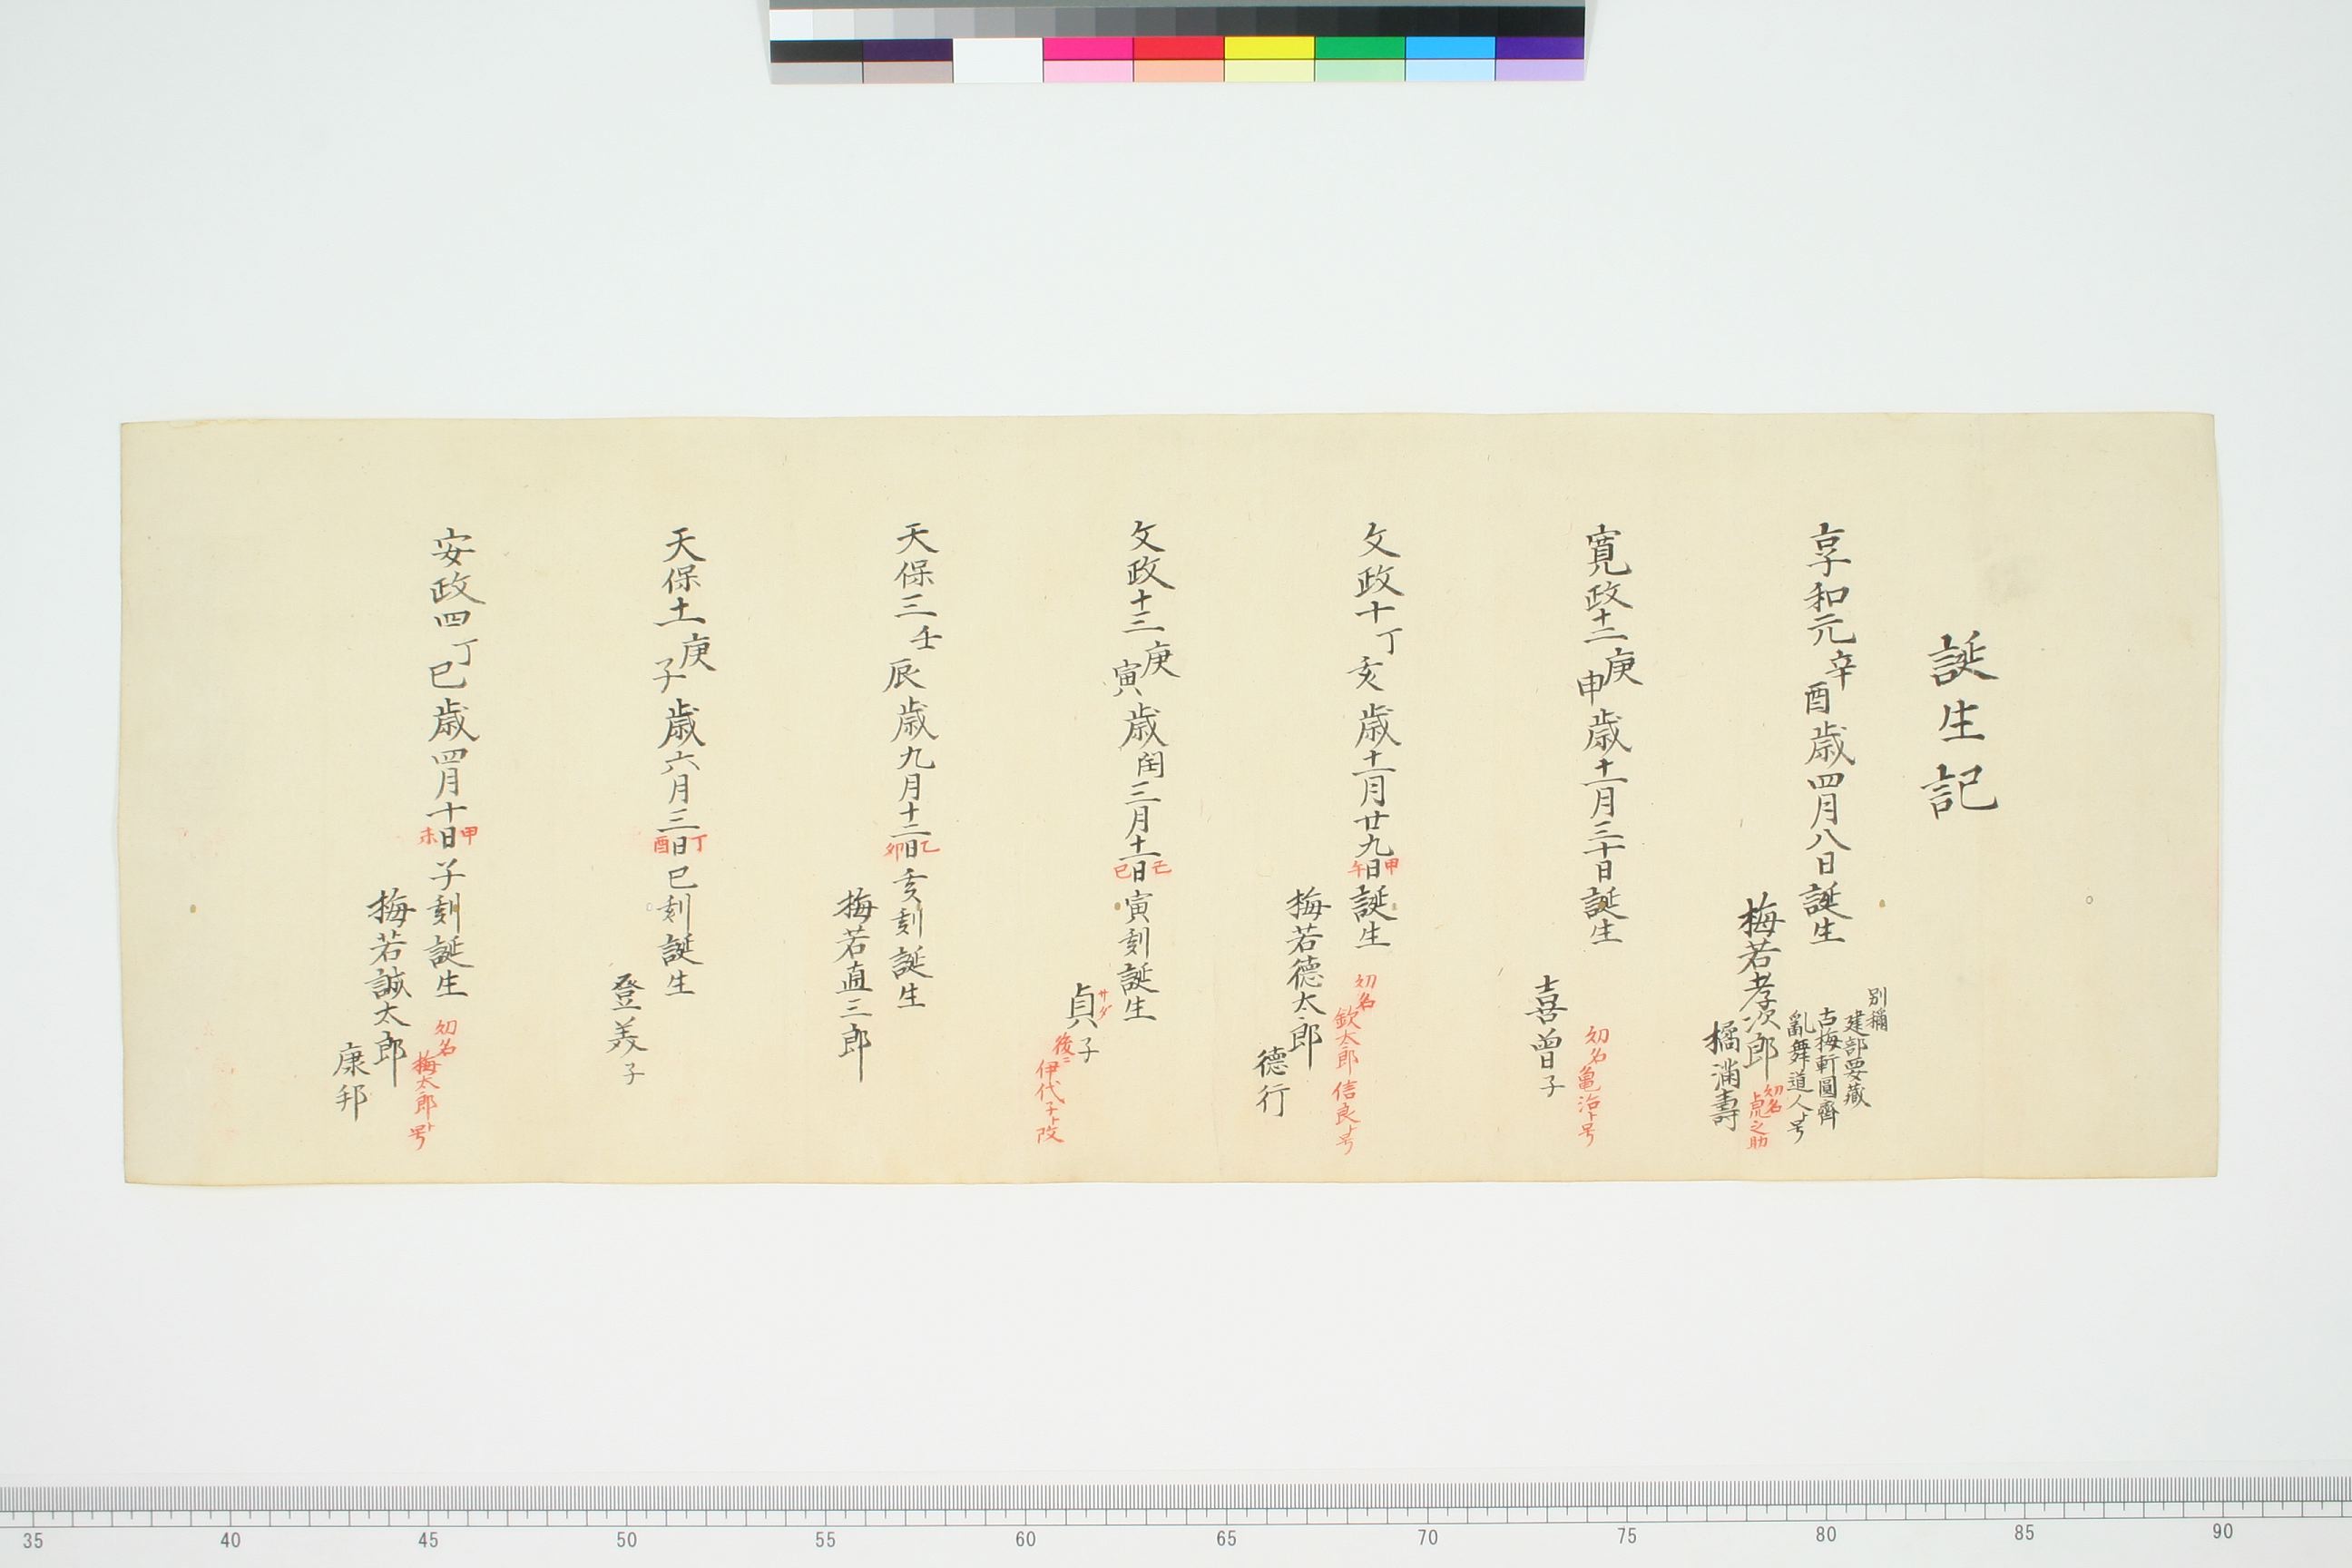 誕生記
享和元辛酉歳四月八日誕生
別稱
建部要藏
古梅軒圓齊
亂舞道人ト号
梅若孝次郎
初名
虎之助
橘滿壽
寛政十二庚申歳十一月三十日誕生
初名亀治ト号
喜曽子
文政十丁亥歳十一月廿九日甲午誕生
初名
欽太郎信良ト号
梅若德太郎
德行
文政十三庚寅歳閏三月十一日己巳寅刻誕生
貞子
サダ
後ニ
伊代子ト改
天保三壬辰歳九月十二日乙卯亥刻誕生
梅若直三郎
天保十一庚子歳六月三日丁酉巳刻誕生
登美子
安政四丁巳歳四月十日甲未子刻誕生
初名
梅太郎ト号
梅若誠太郎
康邦
35 40 45 50 55 60 65 70 75 80 85 90